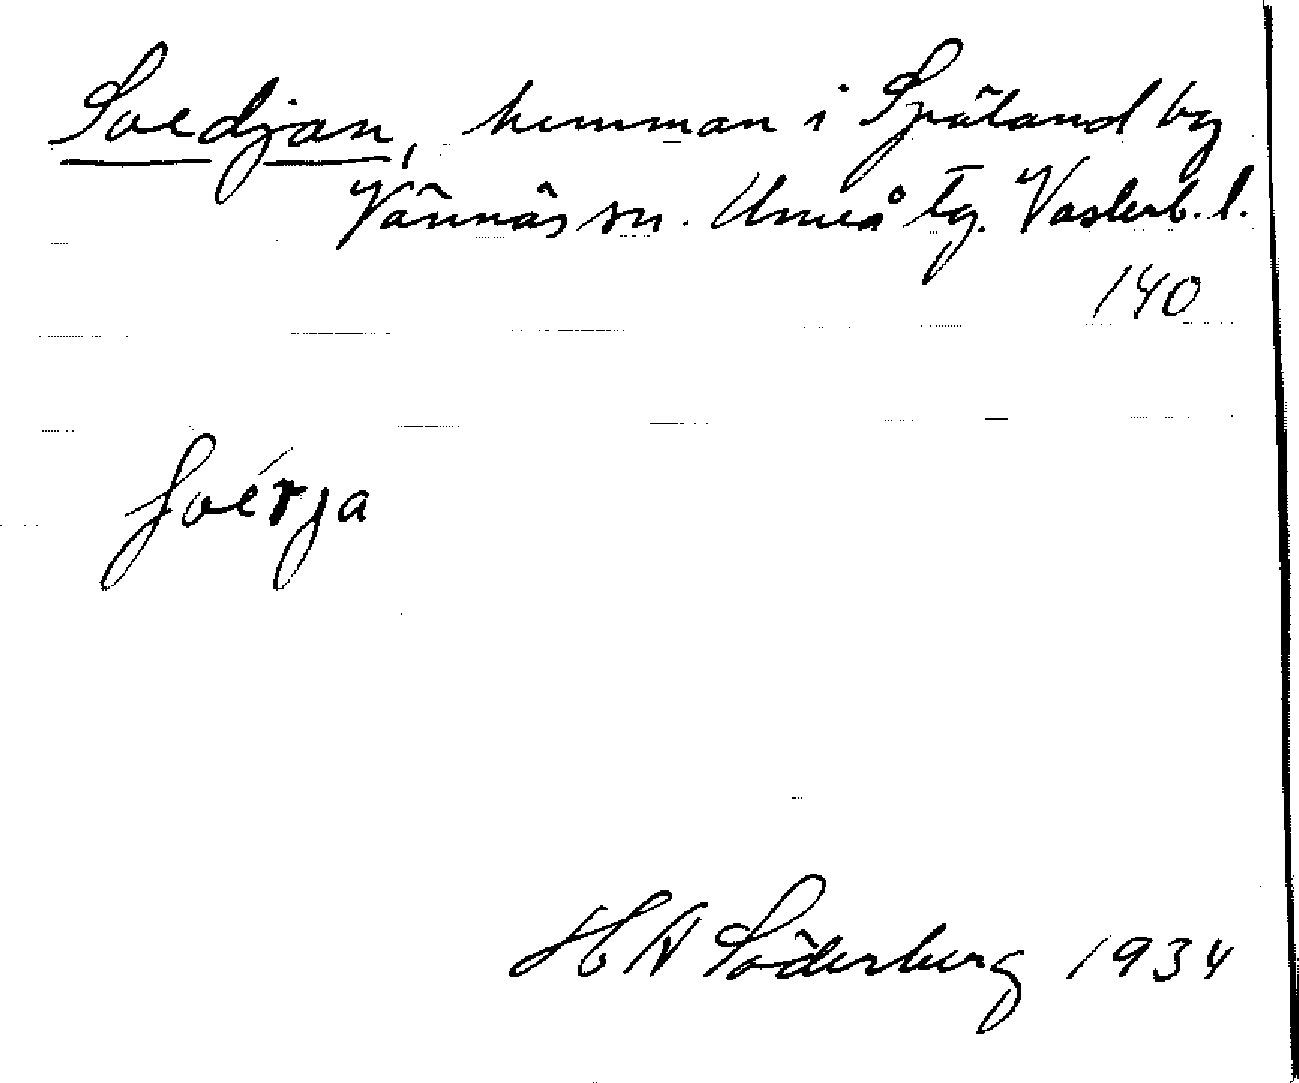 Svedjan, hemman i Spöland by
Vännäs sn. Umeå tg. Västerb. l.
140
H A Söderberg 1934